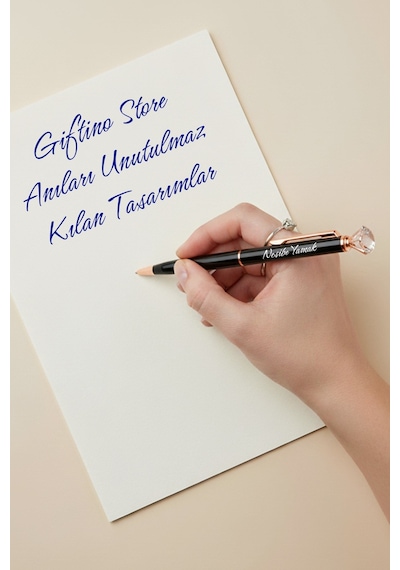 Giftino Store
Anıları Unutulmaz
Kılan Tasarımlar
Nesibe Yamak